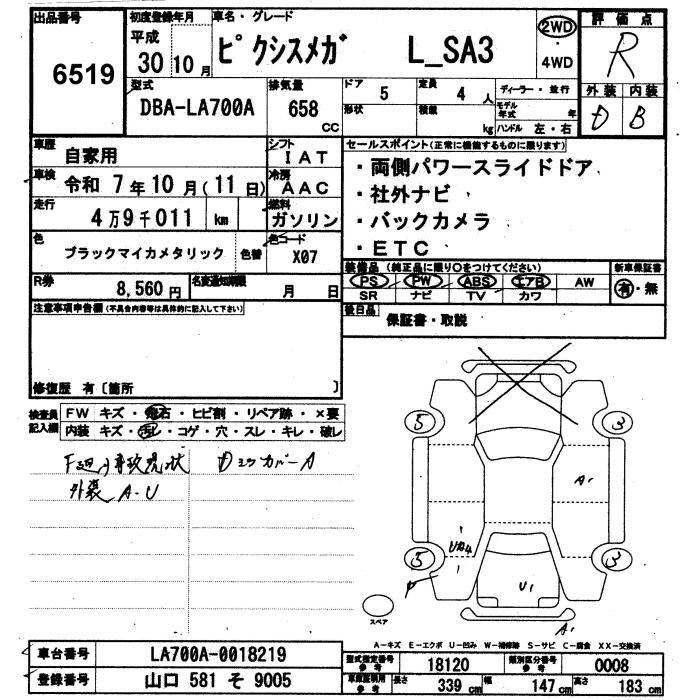 出品番号 6519
初度登録年月 平成 30 10月
車名・グレード ピクシスメガ L_SA3
2WD ・ 4WD
評価点 R
外装 内装
D B
型式 DBA-LA700A
排気量 658 CC
ドア 5
形状
定員 4 人
積載 kg
ディーラー・並行
モデル年式 年
ハンドル 左・右
車歴 自家用
シフト IAT
車検 令和 7年10月(11日)
冷房 AAC
走行 4万9千011 km
燃料 ガソリン
色 ブラックマイカメタリック 色替
色コード X07
R券 8,560円
名変通知期限 月 日
セールスポイント(正常に機能するものに限ります)
・両側パワースライドドア
・社外ナビ
・バックカメラ
・ETC
装備品 (純正品に限り○をつけてください)
PS PW ABS エアB AW
SR ナビ TV カワ
新車保証書
有・無
後日品 保証書・取説
注意事項申告欄(不具合内容等は具体的に記入して下さい)
修復歴 有〔箇所 〕
検査員記入欄
FW キズ・飛石・ヒビ割・リペア跡・×要
内装 キズ・汚レ・コゲ・穴・スレ・キレ・破レ
外装 A・U
5 3
A1
5 3
U1
A1
スペア
A-キズ E-エクボ U-凹み W-補修跡 S-サビ C-腐食 XX-交換済
車台番号 LA700A-0018219
登録番号 山口 581 そ 9005
型式指定番号 参考 18120
類別区分番号 参考 0008
車庫証明用 参考 長さ 339 cm 幅 147 cm 高さ 183 cm